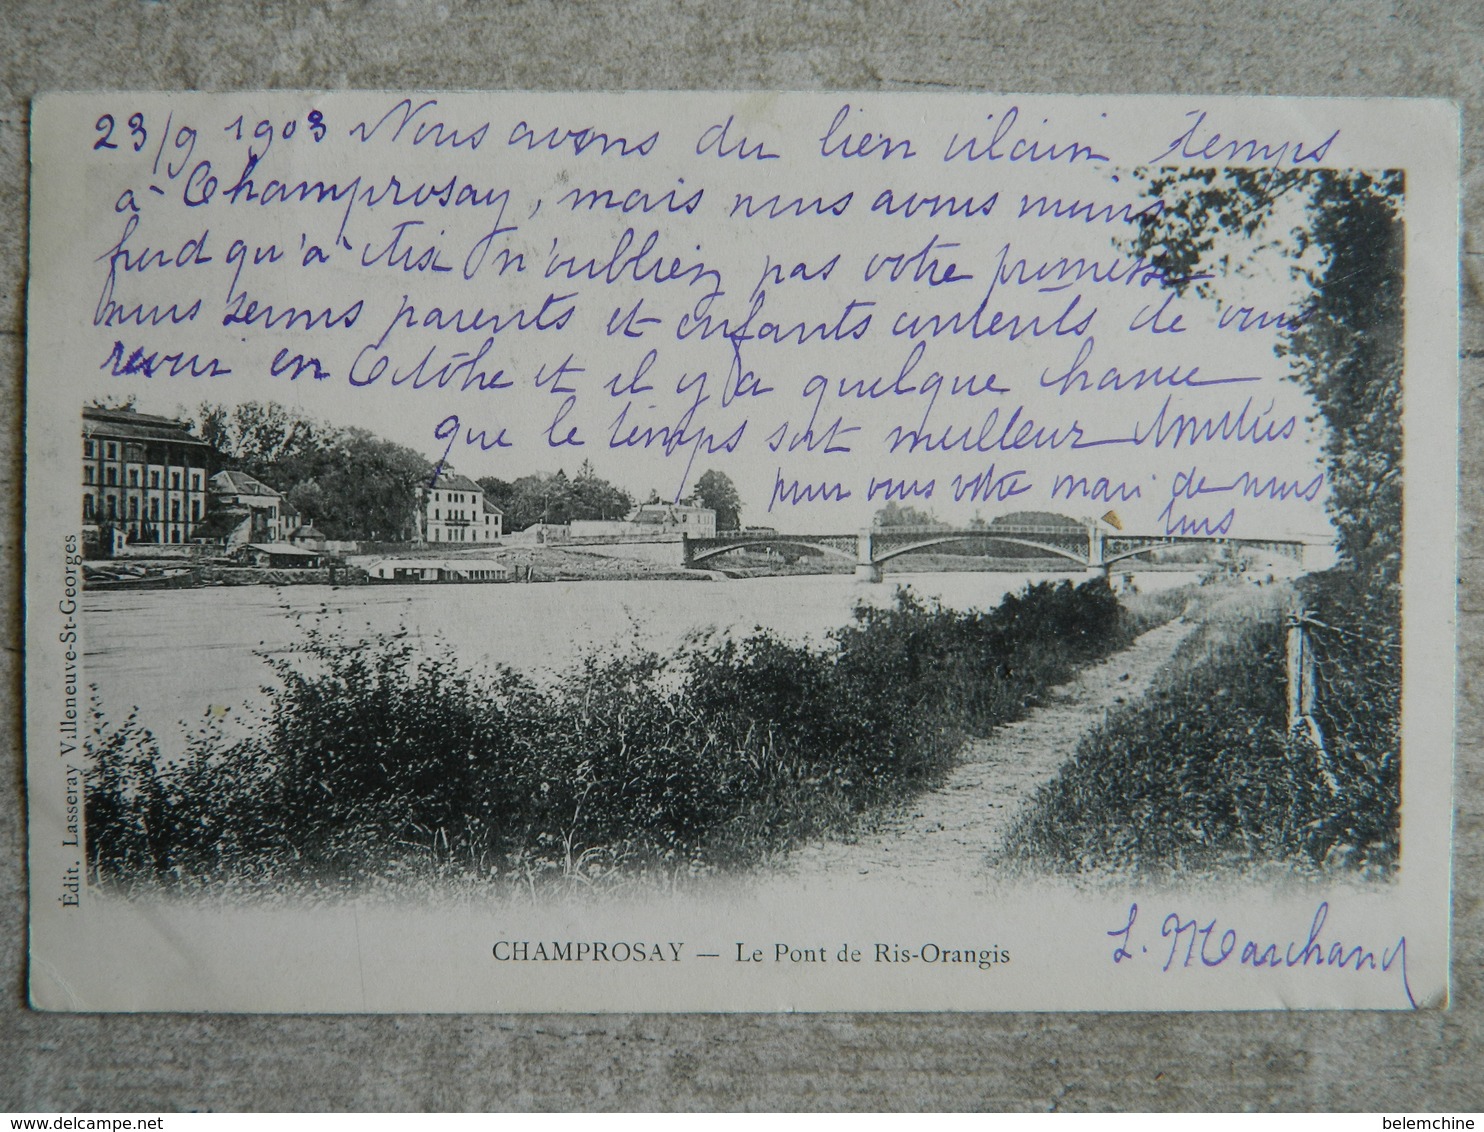 23/9 1903 Nous avons du bien vilain temps
à Champrosay, mais nous avons moins
froid qu'à n'oubliez pas votre promesse
nous serons parents et enfants contents de vous
revoir en Octobre et il y a quelque chance
que le temps soit meilleur Amitiés
pour vous votre mari de nous
tous
Édit. Lasseray Villeneuve-St-Georges
CHAMPROSAY — Le Pont de Ris-Orangis
L. Marchand
belemchine